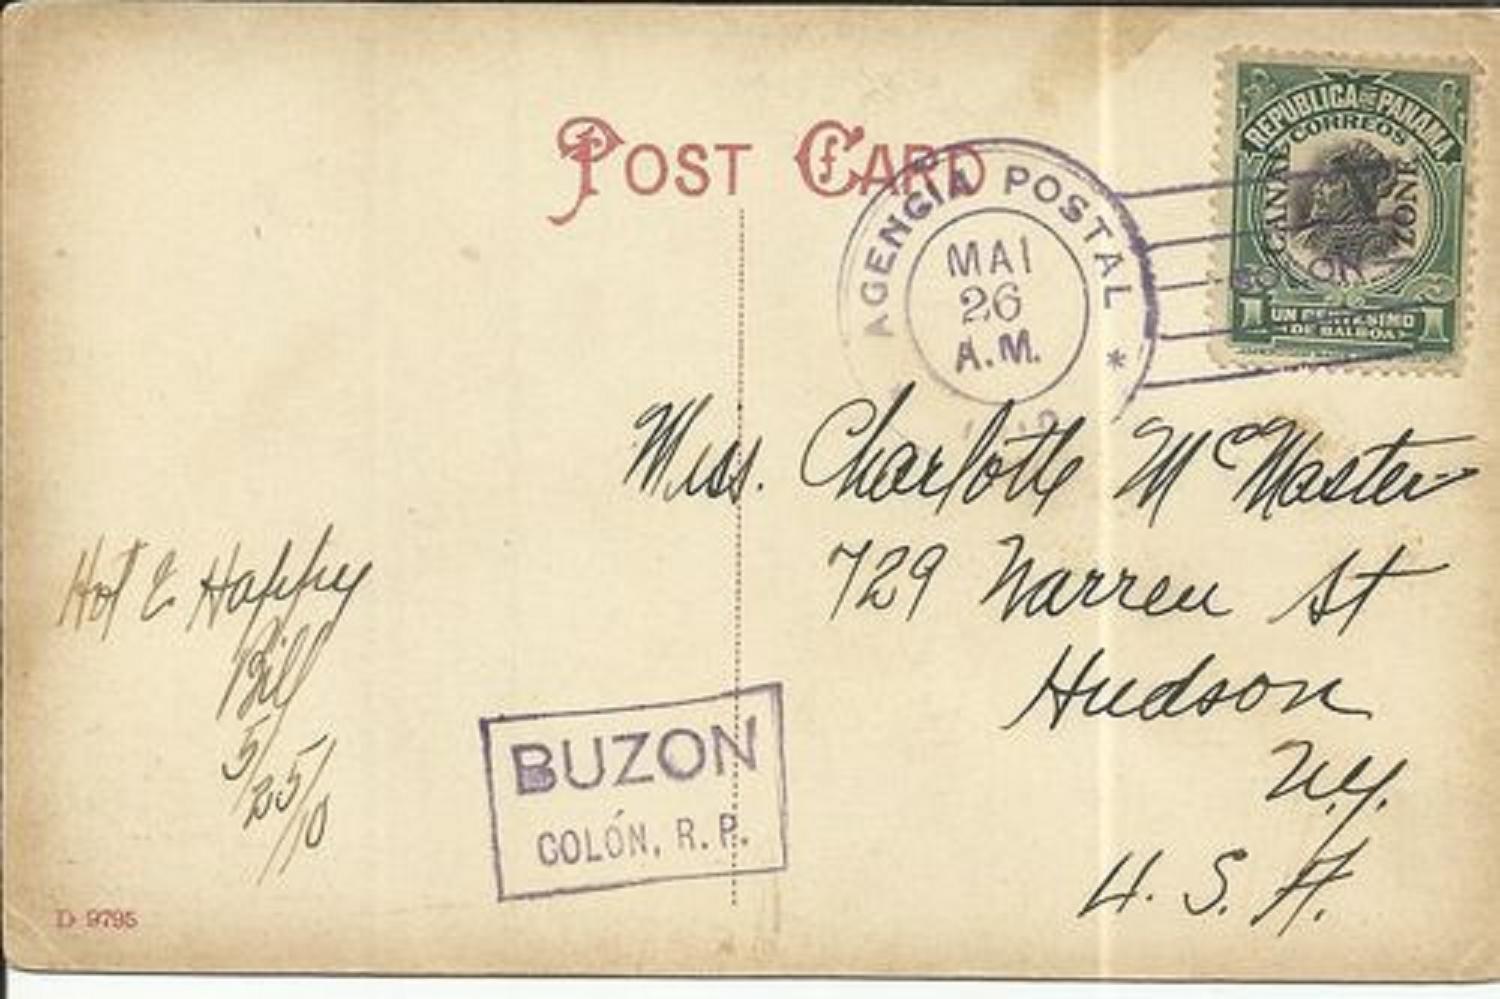 POST CARD
AGENCIA POSTAL *
MAI
26
A.M.
REPUBLICA DE PANAMA
CORREOS
CANAL ZONE
COLON
1 UN CENTESIMO 1
DE BALBOA
Miss. Charlotte McMaster
729 Warren St
Hudson
N.Y.
U. S. A.
Hot & Happy
Bill
5/25/10
BUZON
COLÓN, R. P.
D 9795